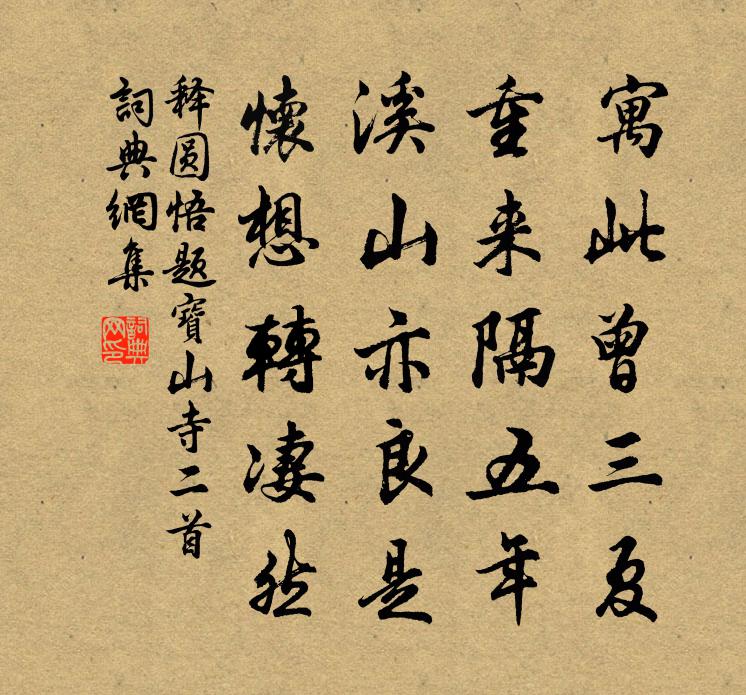 寓此曾三夏
重来隔五年
溪山亦良是
懷想轉凄然
释圆悟题寶山寺二首
詞典網集
詞典网印